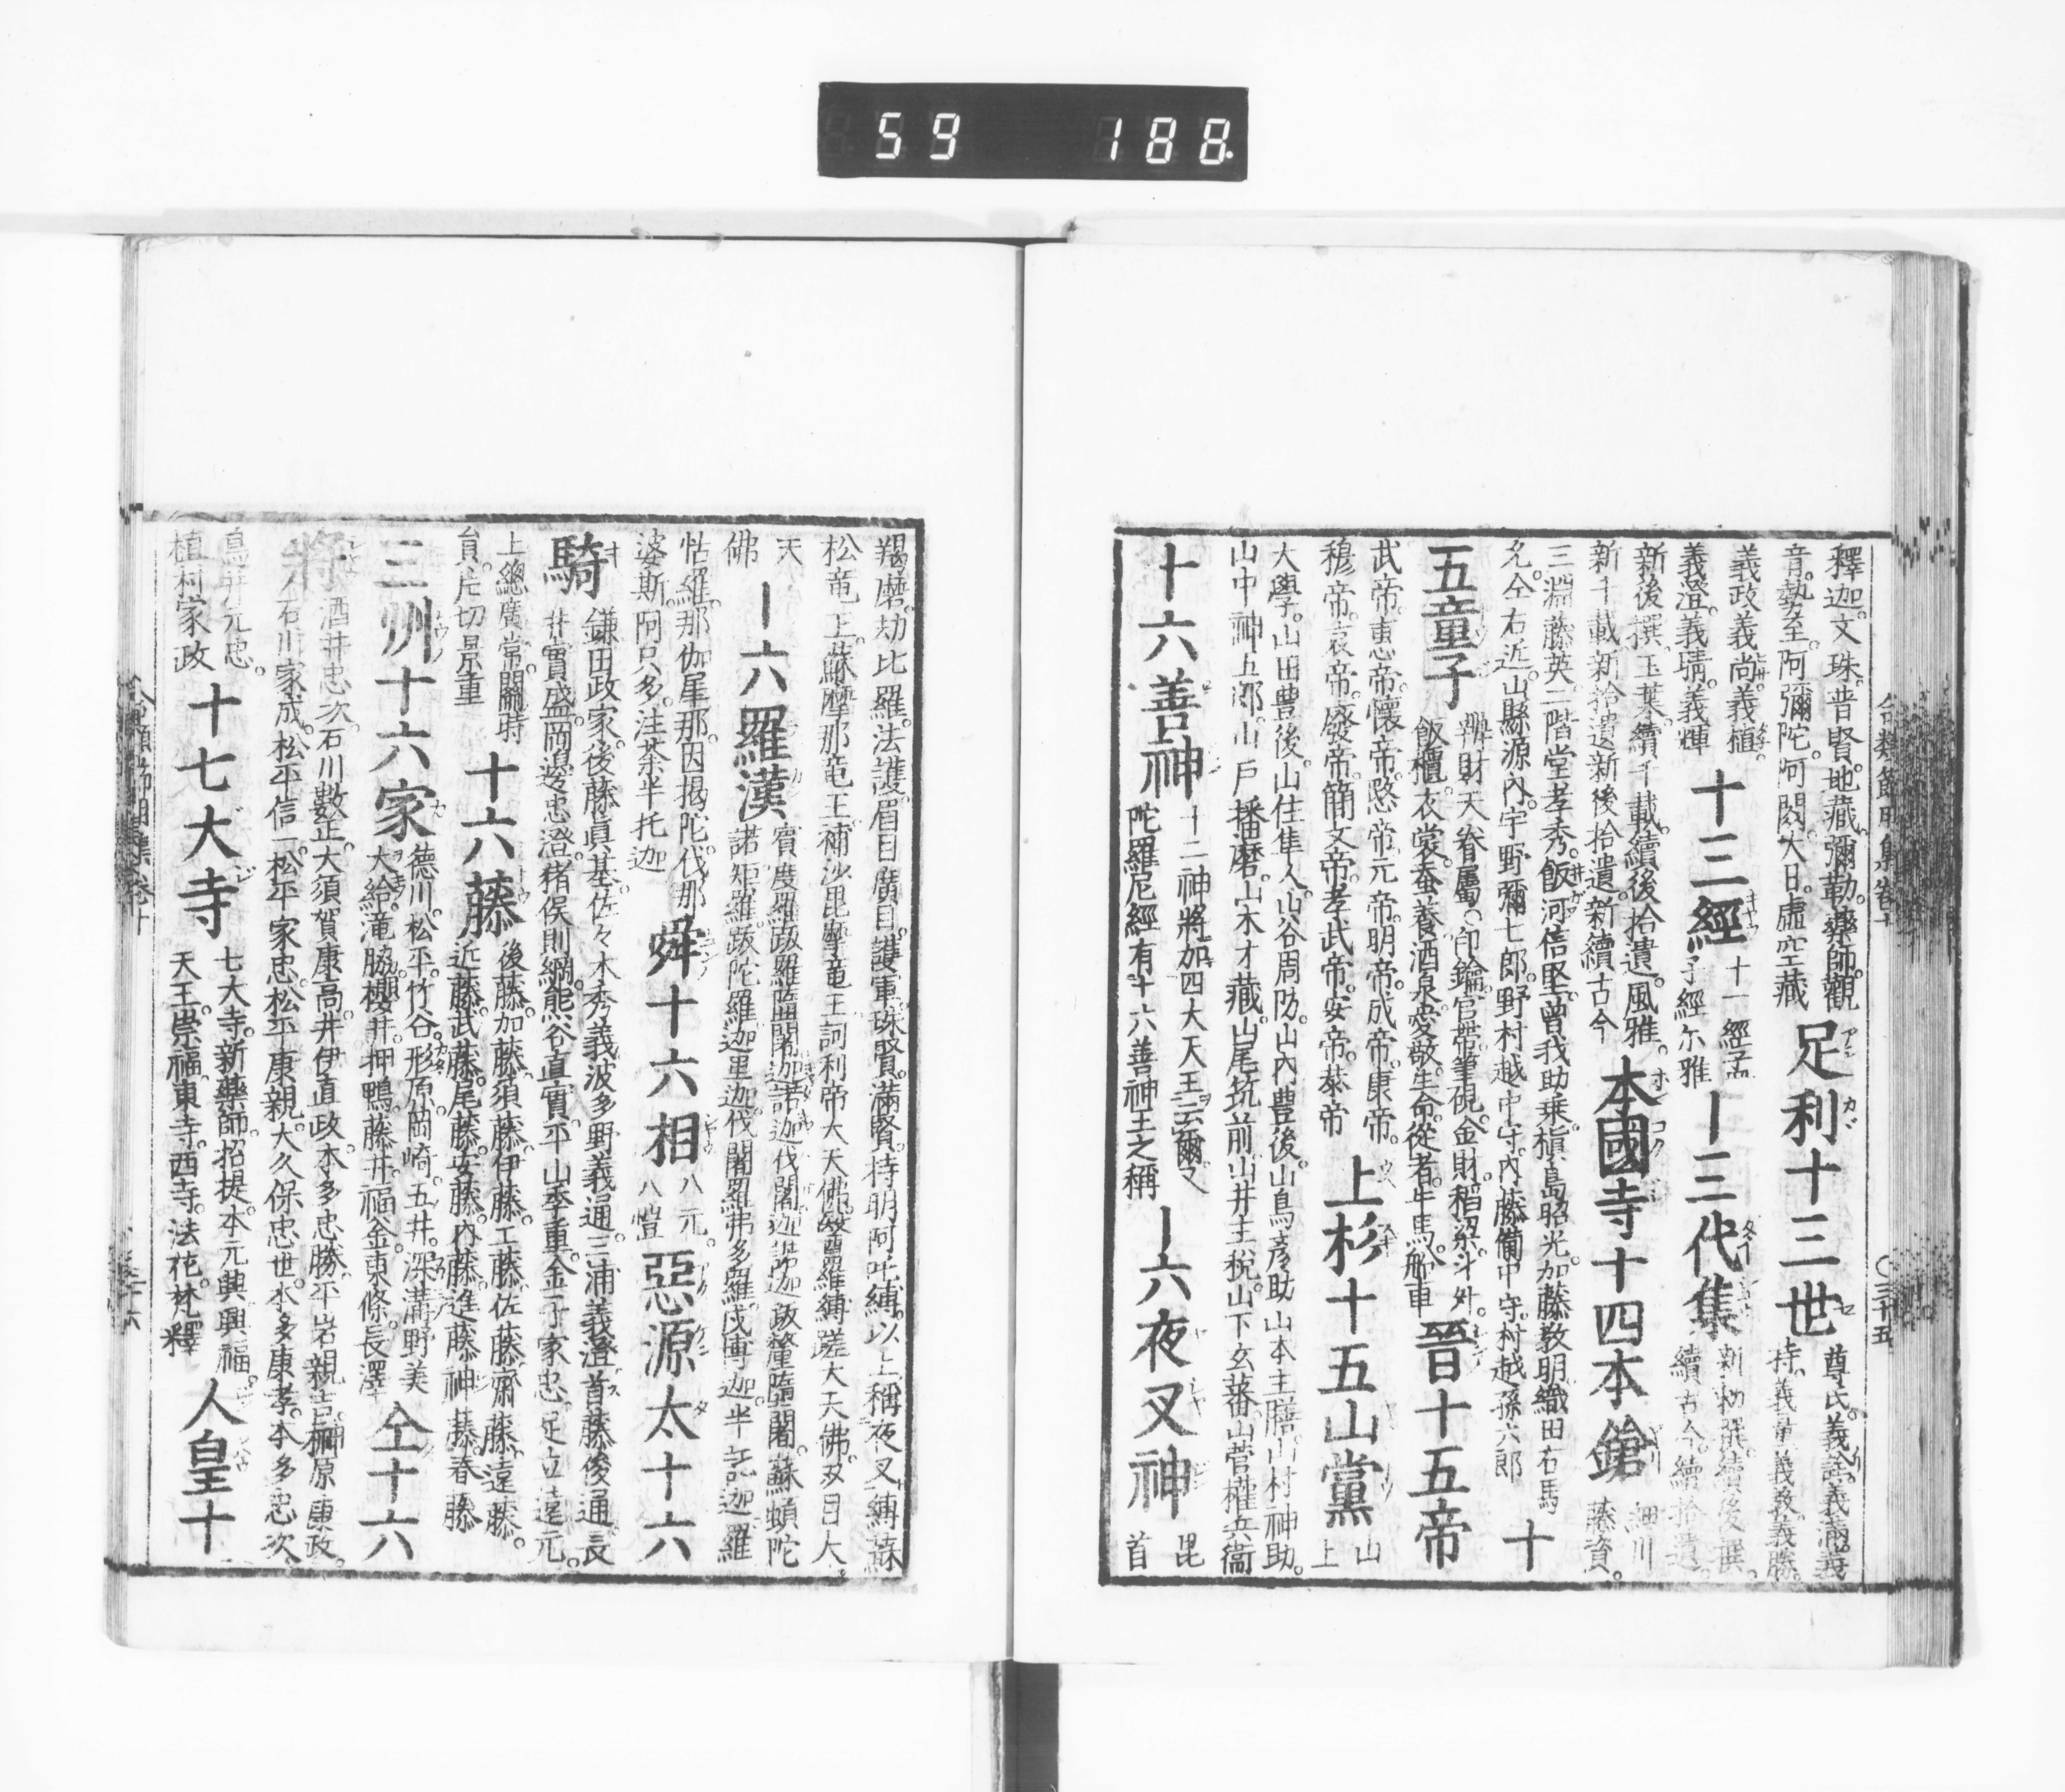 59 188
合類節用集卷十 〇三十五
釋迦。文珠。普賢。地藏。彌勒。藥師。觀
音。勢至。阿彌陀。阿閦。大日。虛空藏
足利十三世
尊氏。義詮。義滿。義
持。義量。義教。義勝。
義政。義尚。義植。
義澄。義晴。義輝
十三經
十一經孟
子經尔雅
一三代集
新勅撰。續後撰。
續古今。續拾遺。
新後撰。玉葉。續千載。續後拾遺。風雅。
新千載。新拾遺。新後拾遺。新續古今
本國寺十四本鎗
細川
藤資。
三淵藤英。二階堂孝秀。飯河信堅。曾我助乗。槙島昭光。加藤教明。織田右馬
允。仝右近。山縣源內。宇野彌七郎。野村越中守。內藤備中守。村越孫六郎
十
五童子
辨財天眷屬。印鑰。官帶。筆硯。金財。稻籾。斗舛。
飯櫃。衣裳。蚕養。酒泉。愛敬。生命。從者。牛馬。船車
晉十五帝
武帝。惠帝。懷帝。愍帝。元帝。明帝。成帝。康帝。
穆帝。哀帝。廢帝。簡文帝。孝武帝。安帝。恭帝
上杉十五山黨
山
上
大學。山田豊後。山住隼人。山谷周防。山內豊後。山鳥彥助。山本主膳。山村神助。
山中神五郎。山戶播磨。山木才藏。山尾筑前。山井主稅。山下玄蕃。山菅權兵衞
十六善神
十二神將加四大天王云爾又
陀羅尼經有十六善神王之稱
一六夜叉神
毘
首
羯磨。劫比羅。法護。眉目。廣目。護軍。珠賢。滿賢。持明。阿吒縛。以上稱夜叉。縛蘇
松竜王。蘇摩那竜王。補沙毘摩竜王。訶利帝大天佛。翳羅縛蹉大天佛。双目大
天
佛
一六羅漢
賓度羅跋羅隨闍。迦諾迦伐闍。迦諾迦跋釐隨闍。蘇頻陀
諾矩羅。跋陀羅。迦里迦。伐闍羅弗多羅。戍博迦。半託迦。羅
怙羅。那伽犀那。因揭陀。伐那
婆斯。阿只多。注荼半托迦
舜十六相
八元。
八愷
惡源太十六
騎
鎌田政家。後藤眞基。佐々木秀義。波多野義通。三浦義澄。首藤俊通。長
井實盛。岡邊忠澄。猪俣則綱。熊谷直實。平山季重。金子家忠。足立遠元。
上總廣常。關時
員。片切景重
十六藤
後藤。加藤。須藤。伊藤。工藤。佐藤。齋藤。遠藤。
近藤。武藤。尾藤。安藤。內藤。進藤。神藤。春藤
三州十六家
德川。松平。竹谷。形原。岡崎。五井。深溝。野美
大給。滝脇。櫻井。押鴨。藤井。福金。東條。長澤
仝十六
將
酒井忠次。石川數正。大須賀康高。井伊直政。本多忠勝。平岩親吉。榊原康政。
石川家成。松平信一。松平家忠。松平康親。大久保忠世。本多康孝。本多忠次
鳥井元忠。
植村家政
十七大寺
七大寺。新藥師。招提。本元興。興福。
天王。崇福。東寺。西寺。法花。梵釋
人皇十
合類節用集卷十 三十六